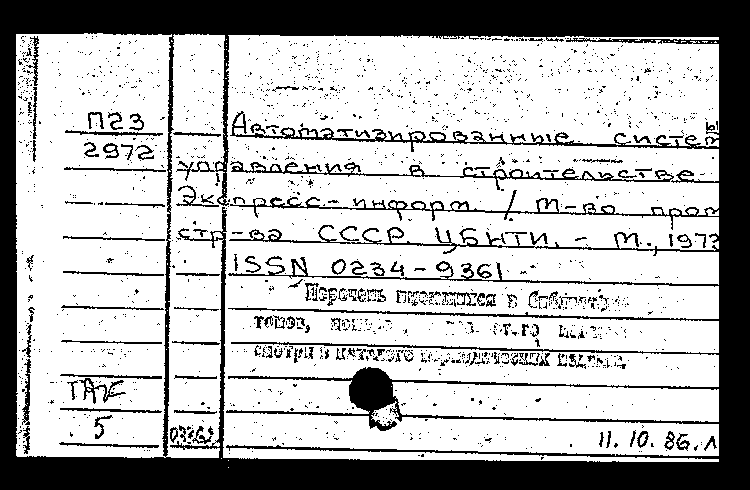 П23
2972
Автоматизированные системы
управления в строительстве.
Экспресс-информ / М-во пром
стр-ва СССР. ЦБНТИ. - М., 1973
ISSN 0234-9361 -
Перечень имеющихся в библиотеке
томов, номера
смотри в каталоге периодических изданий.
5
11.10.86.Л